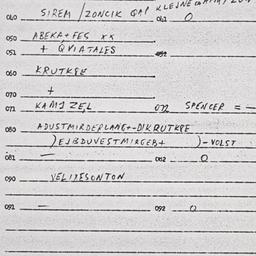 040 SIREM / ZONCIK
042 0
050 ABEKA+FES XX
051 + QVIATALES
052
060 KRUTKPE
+
071 KAMIZEL 072 SPENCER = -
080 ADUSTMIRDERLANG+-DIKRUTKPE
)EJBDUVESTMIRGEB+ )-VOLST
081 — 082 0
090 VELIXESONTON
091 — 092 0